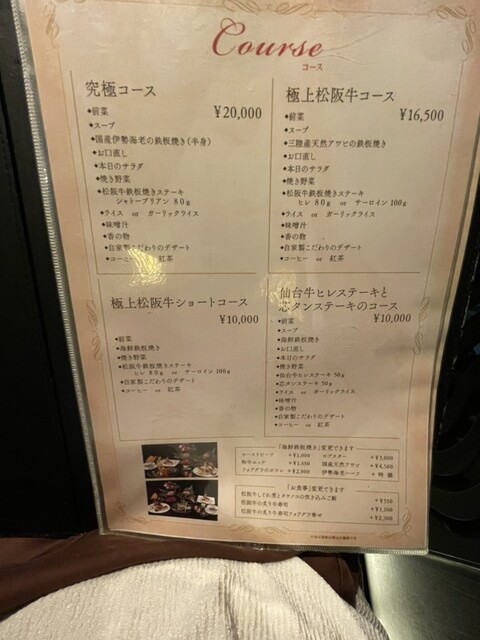 Course
コース
究極コース
¥20,000
◆前菜
◆スープ
◆国産伊勢海老の鉄板焼き(半身)
◆お口直し
◆本日のサラダ
◆焼き野菜
◆松阪牛鉄板焼きステーキ
シャトーブリアン 80g
◆ライス or ガーリックライス
◆味噌汁
◆香の物
◆自家製こだわりのデザート
◆コーヒー or 紅茶
極上松阪牛コース
¥16,500
◆前菜
◆スープ
◆三陸産天然アワビの鉄板焼き
◆お口直し
◆本日のサラダ
◆焼き野菜
◆松阪牛鉄板焼きステーキ
ヒレ 80g or サーロイン 100g
◆ライス or ガーリックライス
◆味噌汁
◆香の物
◆自家製こだわりのデザート
◆コーヒー or 紅茶
極上松阪牛ショートコース
¥10,000
◆前菜
◆海鮮鉄板焼き
◆焼き野菜
◆松阪牛鉄板焼きステーキ
ヒレ 80g or サーロイン 100g
◆自家製こだわりのデザート
◆コーヒー or 紅茶
仙台牛ヒレステーキと
芯タンステーキのコース
¥10,000
◆前菜
◆スープ
◆海鮮鉄板焼き
◆お口直し
◆本日のサラダ
◆焼き野菜
◆仙台牛ヒレステーキ 50g
◆芯タンステーキ 50g
◆ライス or ガーリックライス
◆味噌汁
◆香の物
◆自家製こだわりのデザート
◆コーヒー or 紅茶
「海鮮鉄板焼き」変更できます
ローストビーフ +¥1,000 ロブスター +¥3,000
和牛ユッケ +¥1,650 国産天然アワビ +¥4,500
フォアグラのポワレ +¥2,000 伊勢海老ハーフ + 時価
「お食事」変更できます
松阪牛しぐれ煮とタケノコの炊き込みご飯 +¥550
松阪牛の炙り牛寿司
松阪牛の炙り牛寿司フォアグラ乗せ